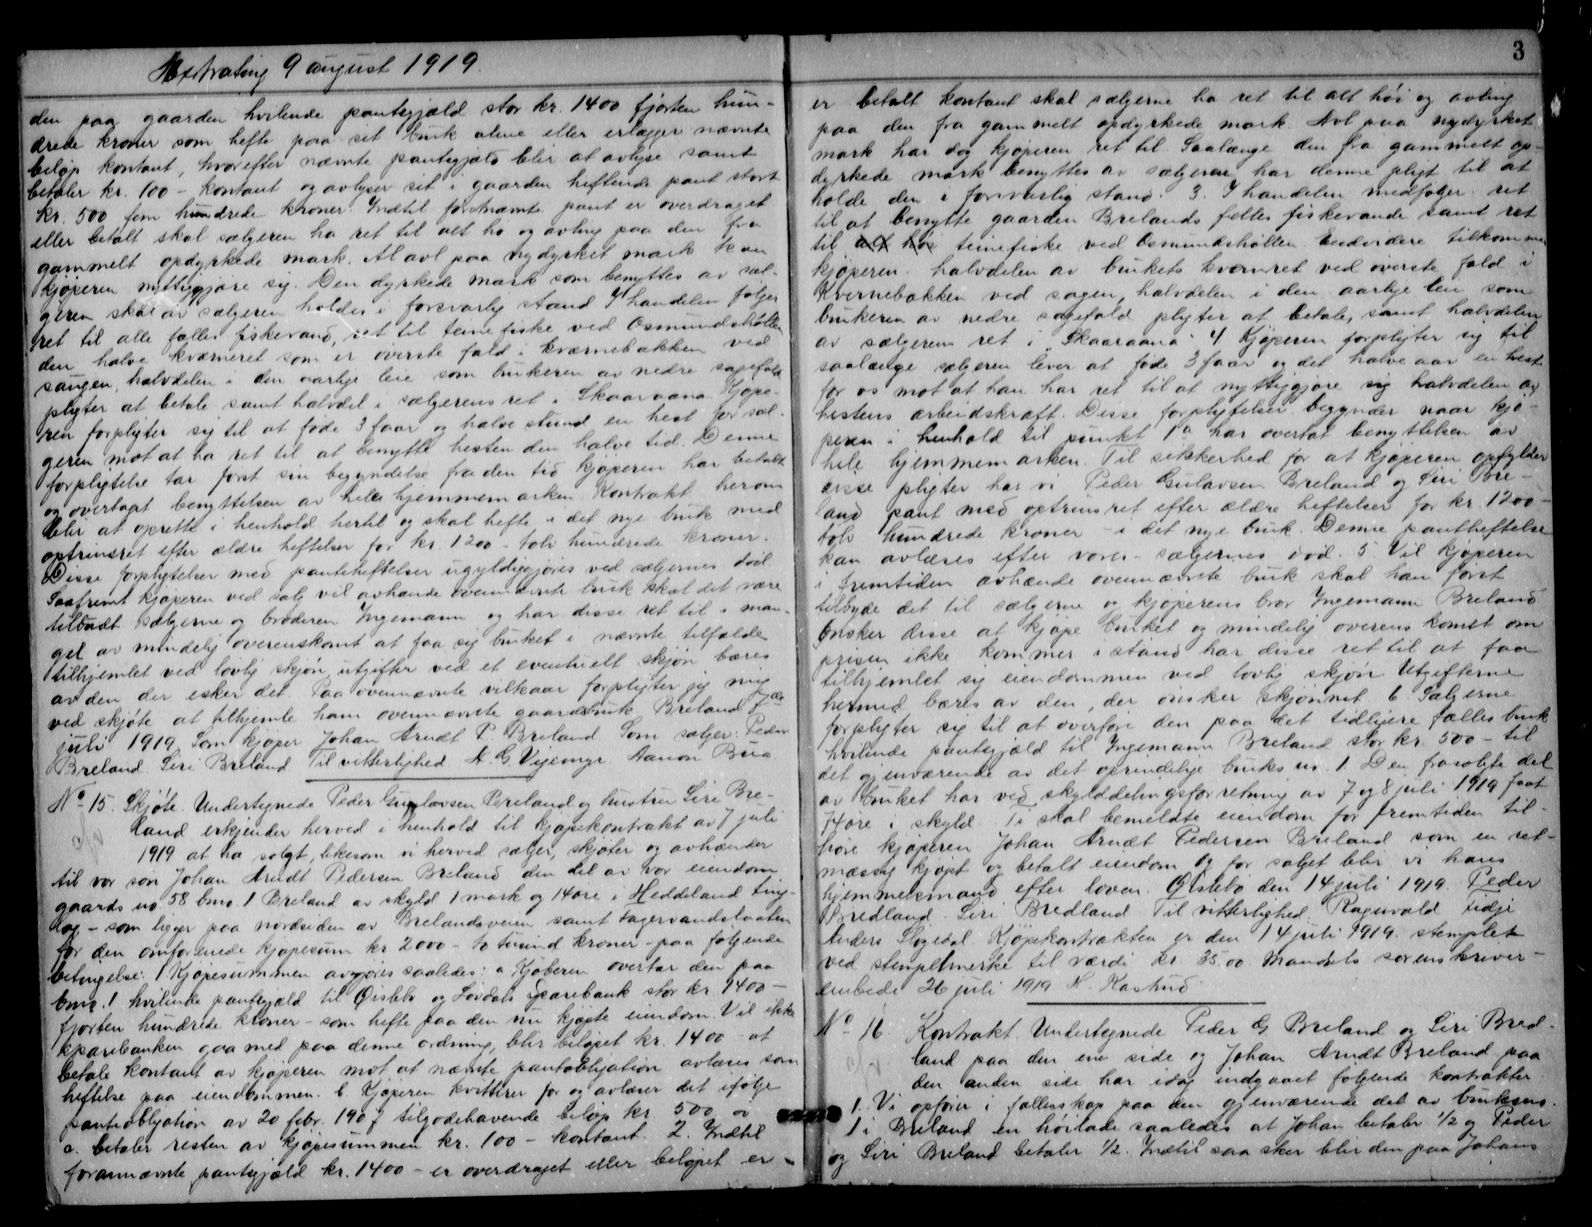 Extrating 9 august 1919.
den paa gaarden hvilende pantegjæld stor kr. 1400 fjorten hun-
drede kroner som hefte paa sit bruk alene eller erlægger nævnte
beløp kontant, hvorefter nævnte pantegjæld blir at avlyse samt
betaler kr. 100 - kontant og avlyser sit i gaarden heftende pant stort
kr. 500 fem hundrede kroner. Indtil fornævnte pant er overdraget
eller betalt skal sælgeren ha ret til alt hø og avling paa den fra
gammelt opdyrkede mark. Al avl paa nydyrket mark kan
kjøperen nyttiggjøre sig. Den dyrkede mark som benyttes av sæl-
geren skal av sælgeren holdes i forsvarlig stand. I handelen følger
ret til alle fælles fiskevand, ret til teinefiske ved Osmundshøllen
den halve kværneret som er øverste fald i kværnebækken ved
saugen, halvdelen i den aarlige leie som brukeren av nedre sagefald
pligter at betale samt halvdel i sælgerens ret i Skaaraana. Kjøpe-
ren forpligter sig til at føde 3 faar og halve stund en hest for sæl-
geren mot at ha ret til at benytte hesten den halve tid. Denne
forpligtelse tar først sin begyndelse fra den tid kjøperen har betalt
og overtaget benyttelsen av hele hjemmemarken. Kontrakt herom
blir at oprette i henhold hertil og skal hefte i det nye bruk med
optrinsret efter ældre heftelser for kr. 1200 - tolv hundrede kroner.
Disse forpligtelser med panteheftelser ugyldiggjøres ved sælgernes død
Saafremt kjøperen ved salg vil avhænde ovennævnte bruk skal det være
tilbudt sælgerne og broderen Ingemann og har disse ret til i man-
gel av mindelig overenskomst at faa sig bruket i nævnte tilfælde
tilhjemlet ved lovlig skjøn, utgifter ved et eventuelt skjøn bæres
av den der ønsker det. Paa ovennævnte vilkaar forpligter jeg mig
ved skjøte at tilhjemle ham ovennævnte gaardsbruk Breland 7de
juli 1919. Som kjøper Johan Arndt P. Breland Som sælger: Peder
Breland. Siri Breland Til vitterlighed A. G. Vijemyr. Aanon Bua
No 15. Skjøte. Undertegnede Peder Gustavsen Breland og hustru Siri Bre-
land erkjender herved i henhold til kjøpekontrakt av 7 juli
1919 at ha solgt, likesom vi herved sælger, skjøter og avhænder
til vor søn Johan Arndt Pedersen Breland den del av vor eiendom,
gaards no 58 bno. 1 Breland av skyld 1 mark og 14 øre i Heddeland ting-
lag - som ligger paa nordsiden av Brelandsveien samt
for den omforenede kjøpesum kr 2000 - to tusind kroner - paa følgende
betingelse: 1 Kjøpesummen avgjøres saaledes: a Kjøberen overtar den paa
bno. 1 hvilende pantegjæld til Øislebø og Lovdals Sparebank stor kr. 1400 -
fjorten hundrede kroner - som hefte paa den nu kjøpte eiendom. Vil ikke
sparebanken gaa med paa denne ordning, blir beløpet kr. 1400 at
betale kontant av kjøperen mot at nævnte pantobligation avlæses som
heftelse paa eiendommen. b Kjøperen kvitterer for og avlæser det ifølge
pantobligation av 20 febr. 1907 tilgodehavende beløp kr. 500 og
c. betaler resten av kjøpesummen kr. 100 - kontant. 2. Indtil
forannævnte pantegjæld kr. 1400 - er overdraget eller beløpet er
3
er betalt kontant skal sælgerne ha ret til alt høi og avling
paa den fra gammelt opdyrkede mark. Avl paa nydyrket
mark har dog kjøperen ret til. Saalænge den fra gammelt op-
dyrkede mark benyttes av sælgeren har denne pligt til at
holde den i forsvarlig stand. 3. I handelen medfølger ret
til at benytte gaarden Brelands felles fiskevande samt ret
til teinefiske ved Osmundshøllen. Endvidere tilkommer
kjøperen halvdelen av brukets kvernret ved øverste fald i
Kvernebækken ved sagen, halvdelen i den aarlige leie som
brukeren av nedre sagefald pligter at betale, samt halvdelen
av sælgerens ret i Skaaraana. 4 Kjøperen forpligter sig til
saalænge sælgeren lever at føde 3 faar og det halve aar en hest
for os mot at han har ret til at nyttiggjøre sig halvdelen av
hestens arbeidskraft. Disse forpligtelser begynder naar kjø-
peren i henhold til punkt 1a har overtat benyttelsen av
hele hjemmemarken. Til sikkerhed for at kjøperen opfylder
disse pligter har vi Peder Gustavsen Breland og Siri Bre-
land pant med optrinsret efter ældre heftelser for kr. 1200 -
tolv hundrede kroner - i det nye bruk. Denne pantheftelse
kan avlæses efter vores - sælgernes død. 5. Vil kjøperen
i fremtiden avhænde ovennævnte bruk skal han først
tilbyde det til sælgerne og kjøperens bror Ingemann Breland
Ønsker disse at kjøpe bruket og mindelig overenskomst om
prisen ikke kommer istand har disse ret til at faa
tilhjemlet sig eiendommen ved lovlig skjøn Utgifterne
hermed bæres av den, der ønsker skjønnet. 6 Sælgerne
forpligter sig til at overføre den paa det tidligere fælles bruk
hvilende pantegjæld til Ingemann Breland stor kr. 500 - til
det gjenværende av det oprindelige bruks no. 1. Den frasolgte del
av bruket har ved skylddelingsforretning av 7 og 8 juli 1919 faat
77 øre i skyld. Ti skal bemeldte eiendom for fremtiden til-
høre kjøperen Johan Arndt Pedersen Breland som en ret-
mæssig kjøpt og betalt eiendom og for salget blir vi hans
hjemmelsmand efter loven. Øislebø den 14 juli 1919. Peder
Bredland. Siri Bredland. Til vitterlighed Ragnvald Fidje
Anders Skjedal. Kjøpekontrakten er den 14 juli 1919. stemplet
ved stempelmerke til værdi kr. 35.00. Mandals sorenskriver-
embede 26 juli 1919 H. Kastrud.
No 16. Kontrakt. Undertegnede Peder G Breland og Siri Bred-
land paa den ene side og Johan Arndt Breland paa
den anden side har idag indgaaet følgende kontrakter.
1. Vi opfører i fællesskap paa den gjenværende del av bruksno.
1 i Breland en høilade saaledes at Johan betaler 1/2 og Peder
og Siri Breland betaler 1/2. Indtil saa sker blir den paa Johans